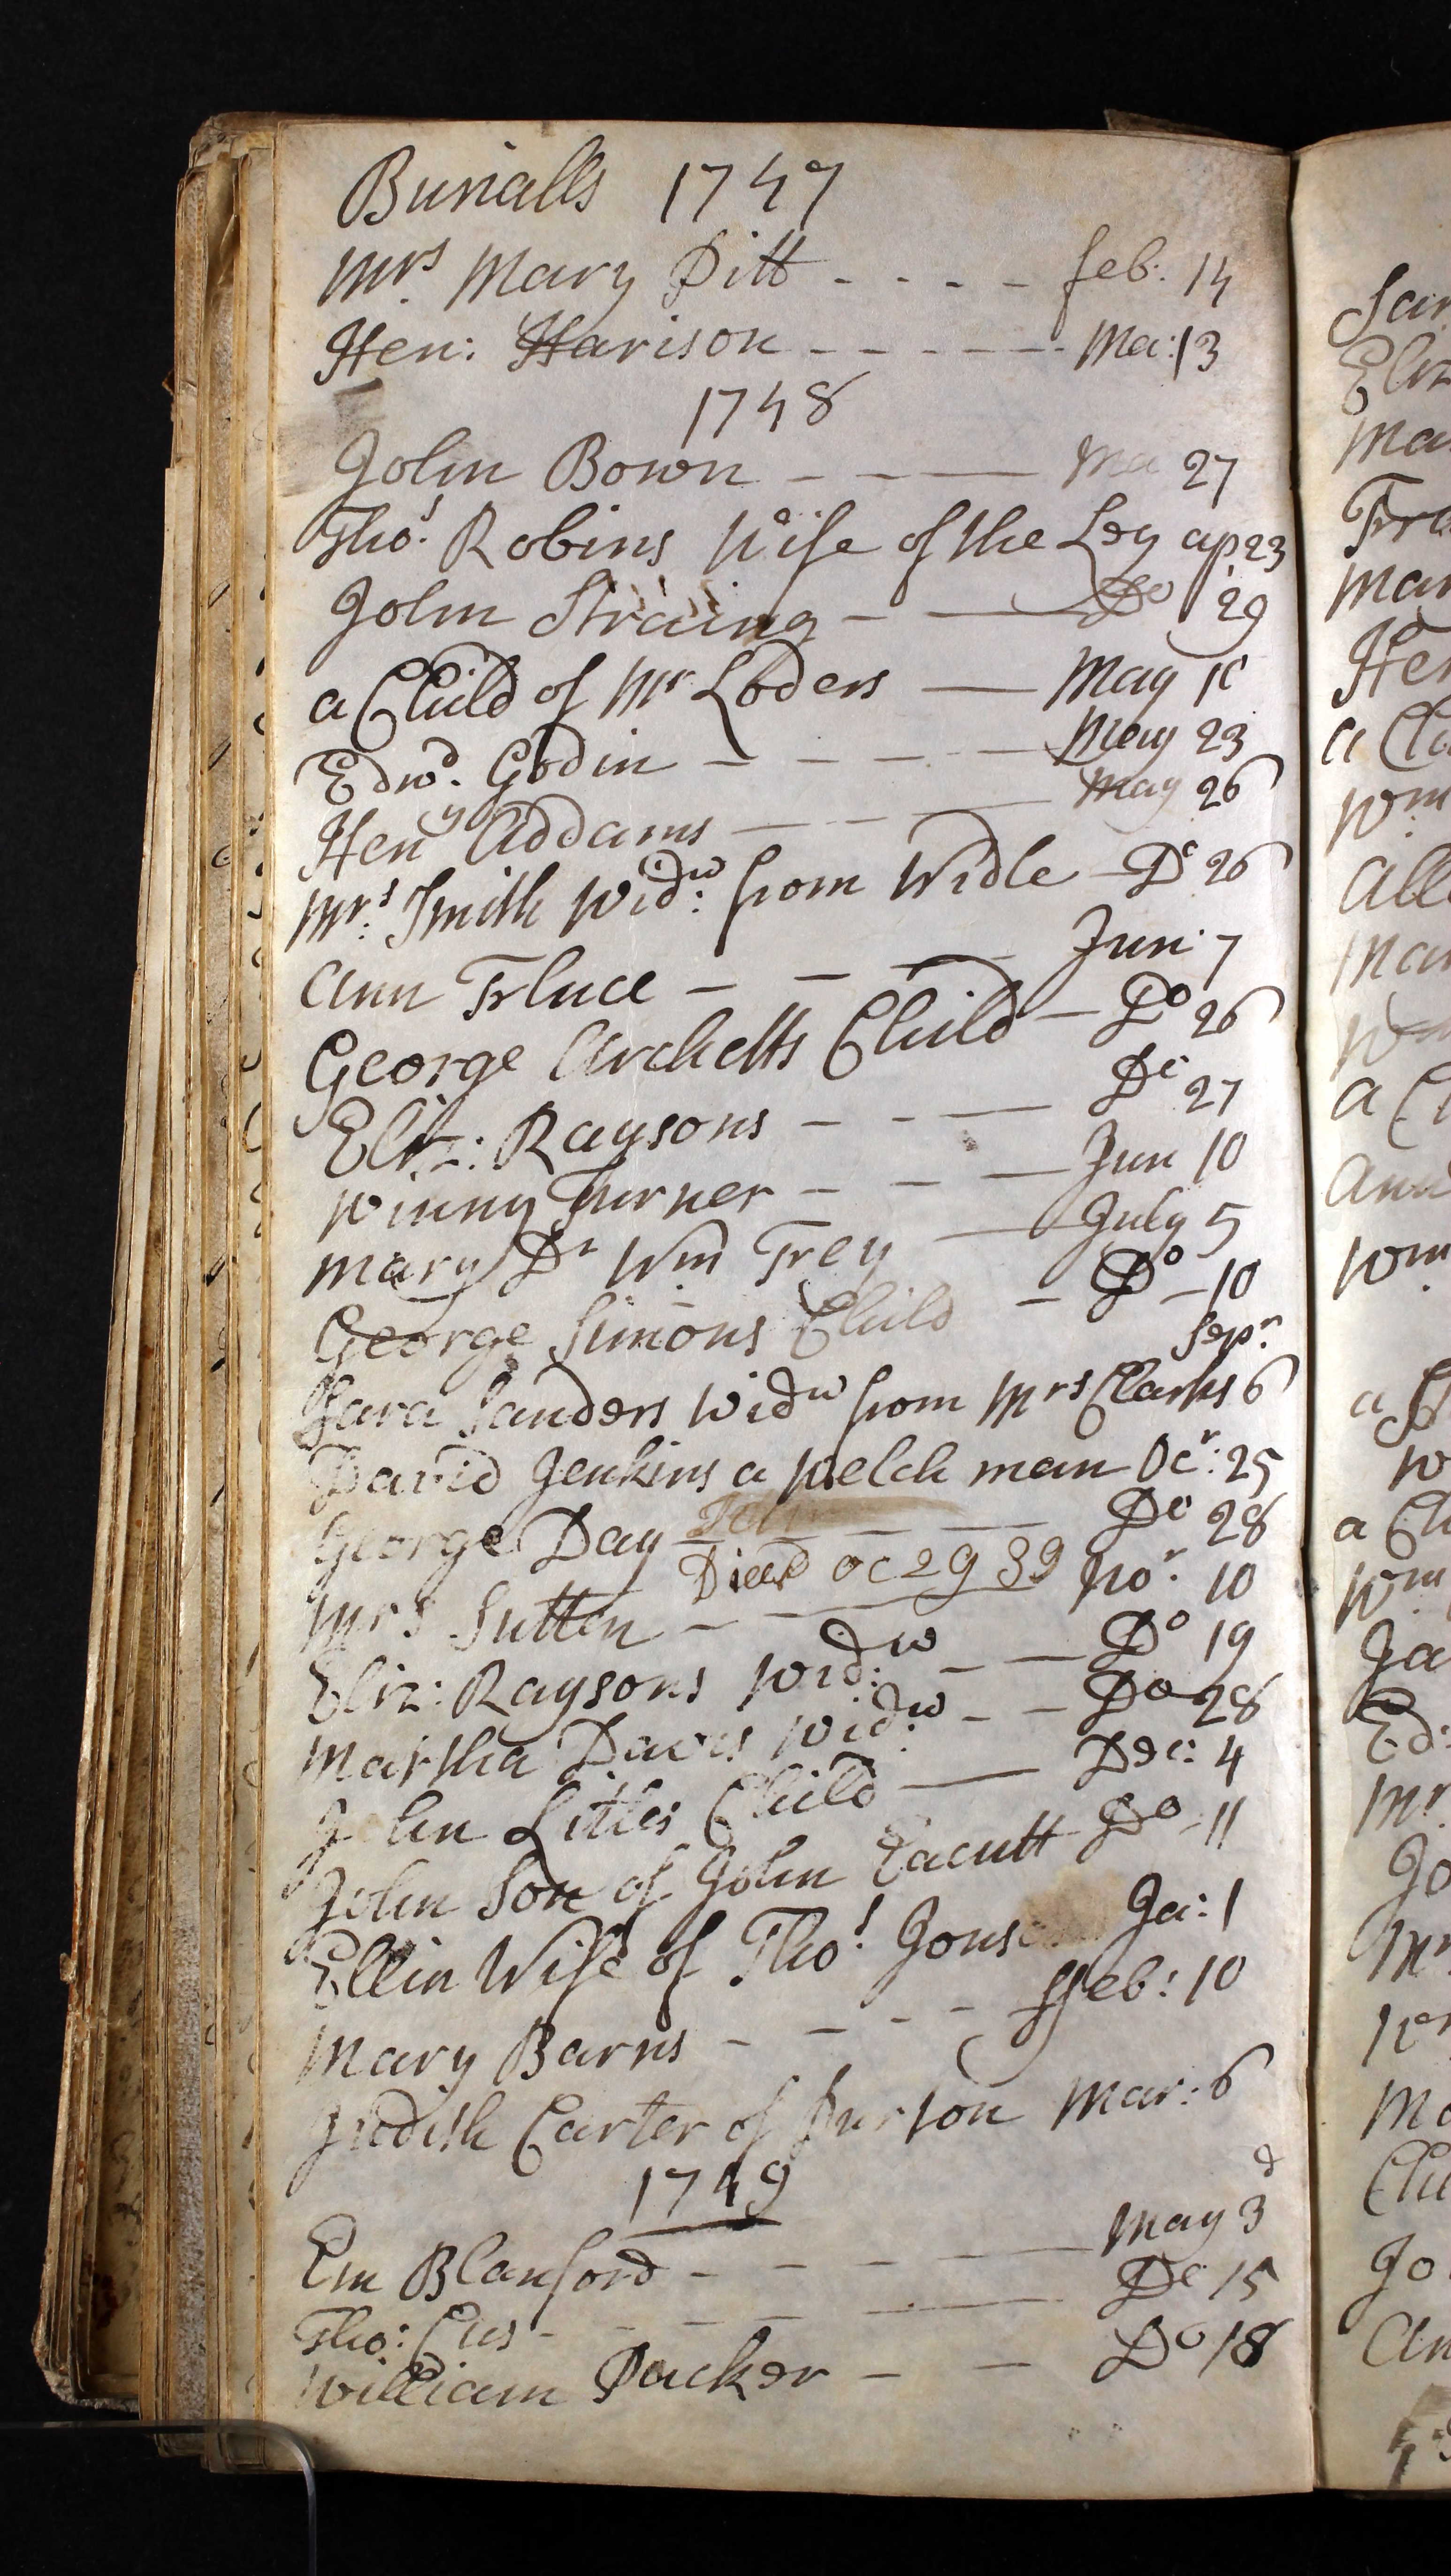 Burialls 1747
Mrs Mary Pitt - - - - feb: 14
Hen: Harison - - - - - - Ma: 13
1748
John Bown - - — Ma 27
Thos Robins Wife of the Leg ap 23
John Straing - — Do 29
a Child of Mr Loders — May 10
Edwd. Godin - - - - - May 23
Heny Addams — - - — May 26
Mrs Smith Widw: from Widle - Do 26
Ann - - — Jun: 7
George Archetts Child - Do 26
Eliz: Raysons - - — Do 27
Winny Turner - - - — Jun 10
Mary Dr Wm Frey — July 5
George Simons Child - Do - 10
Sepr
Sara Sanders Widw from Mrs Clarks 6
David Jenkins a Welch man Ocr: 25
George Day - — Do 28
Died oc 29 39
Mrs Sutten - — Nor 10
Eliz: Raysons Widw: - — Do 19
Martha Davis Widw: - - Do 28
John Litles Child — Dec: 4
John Son of John Eacutt Do - 11
Ellin Wife of Thos Jons Ja: 1
Mary Barns - - - - ffeb: 10
Judith Carter of Purton Mar: 6
1749
Em Blanford - - - — May 3d
Tho: - - - - — Do 15
William Packer - — Do 18